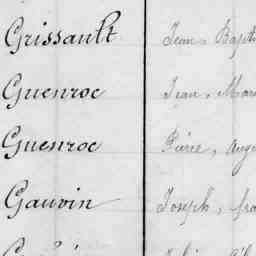 Grissault Jean, Bapti
Guenroc Jean, Mar
Guenroc Pierre, Aug
Gauvin Joseph, fra